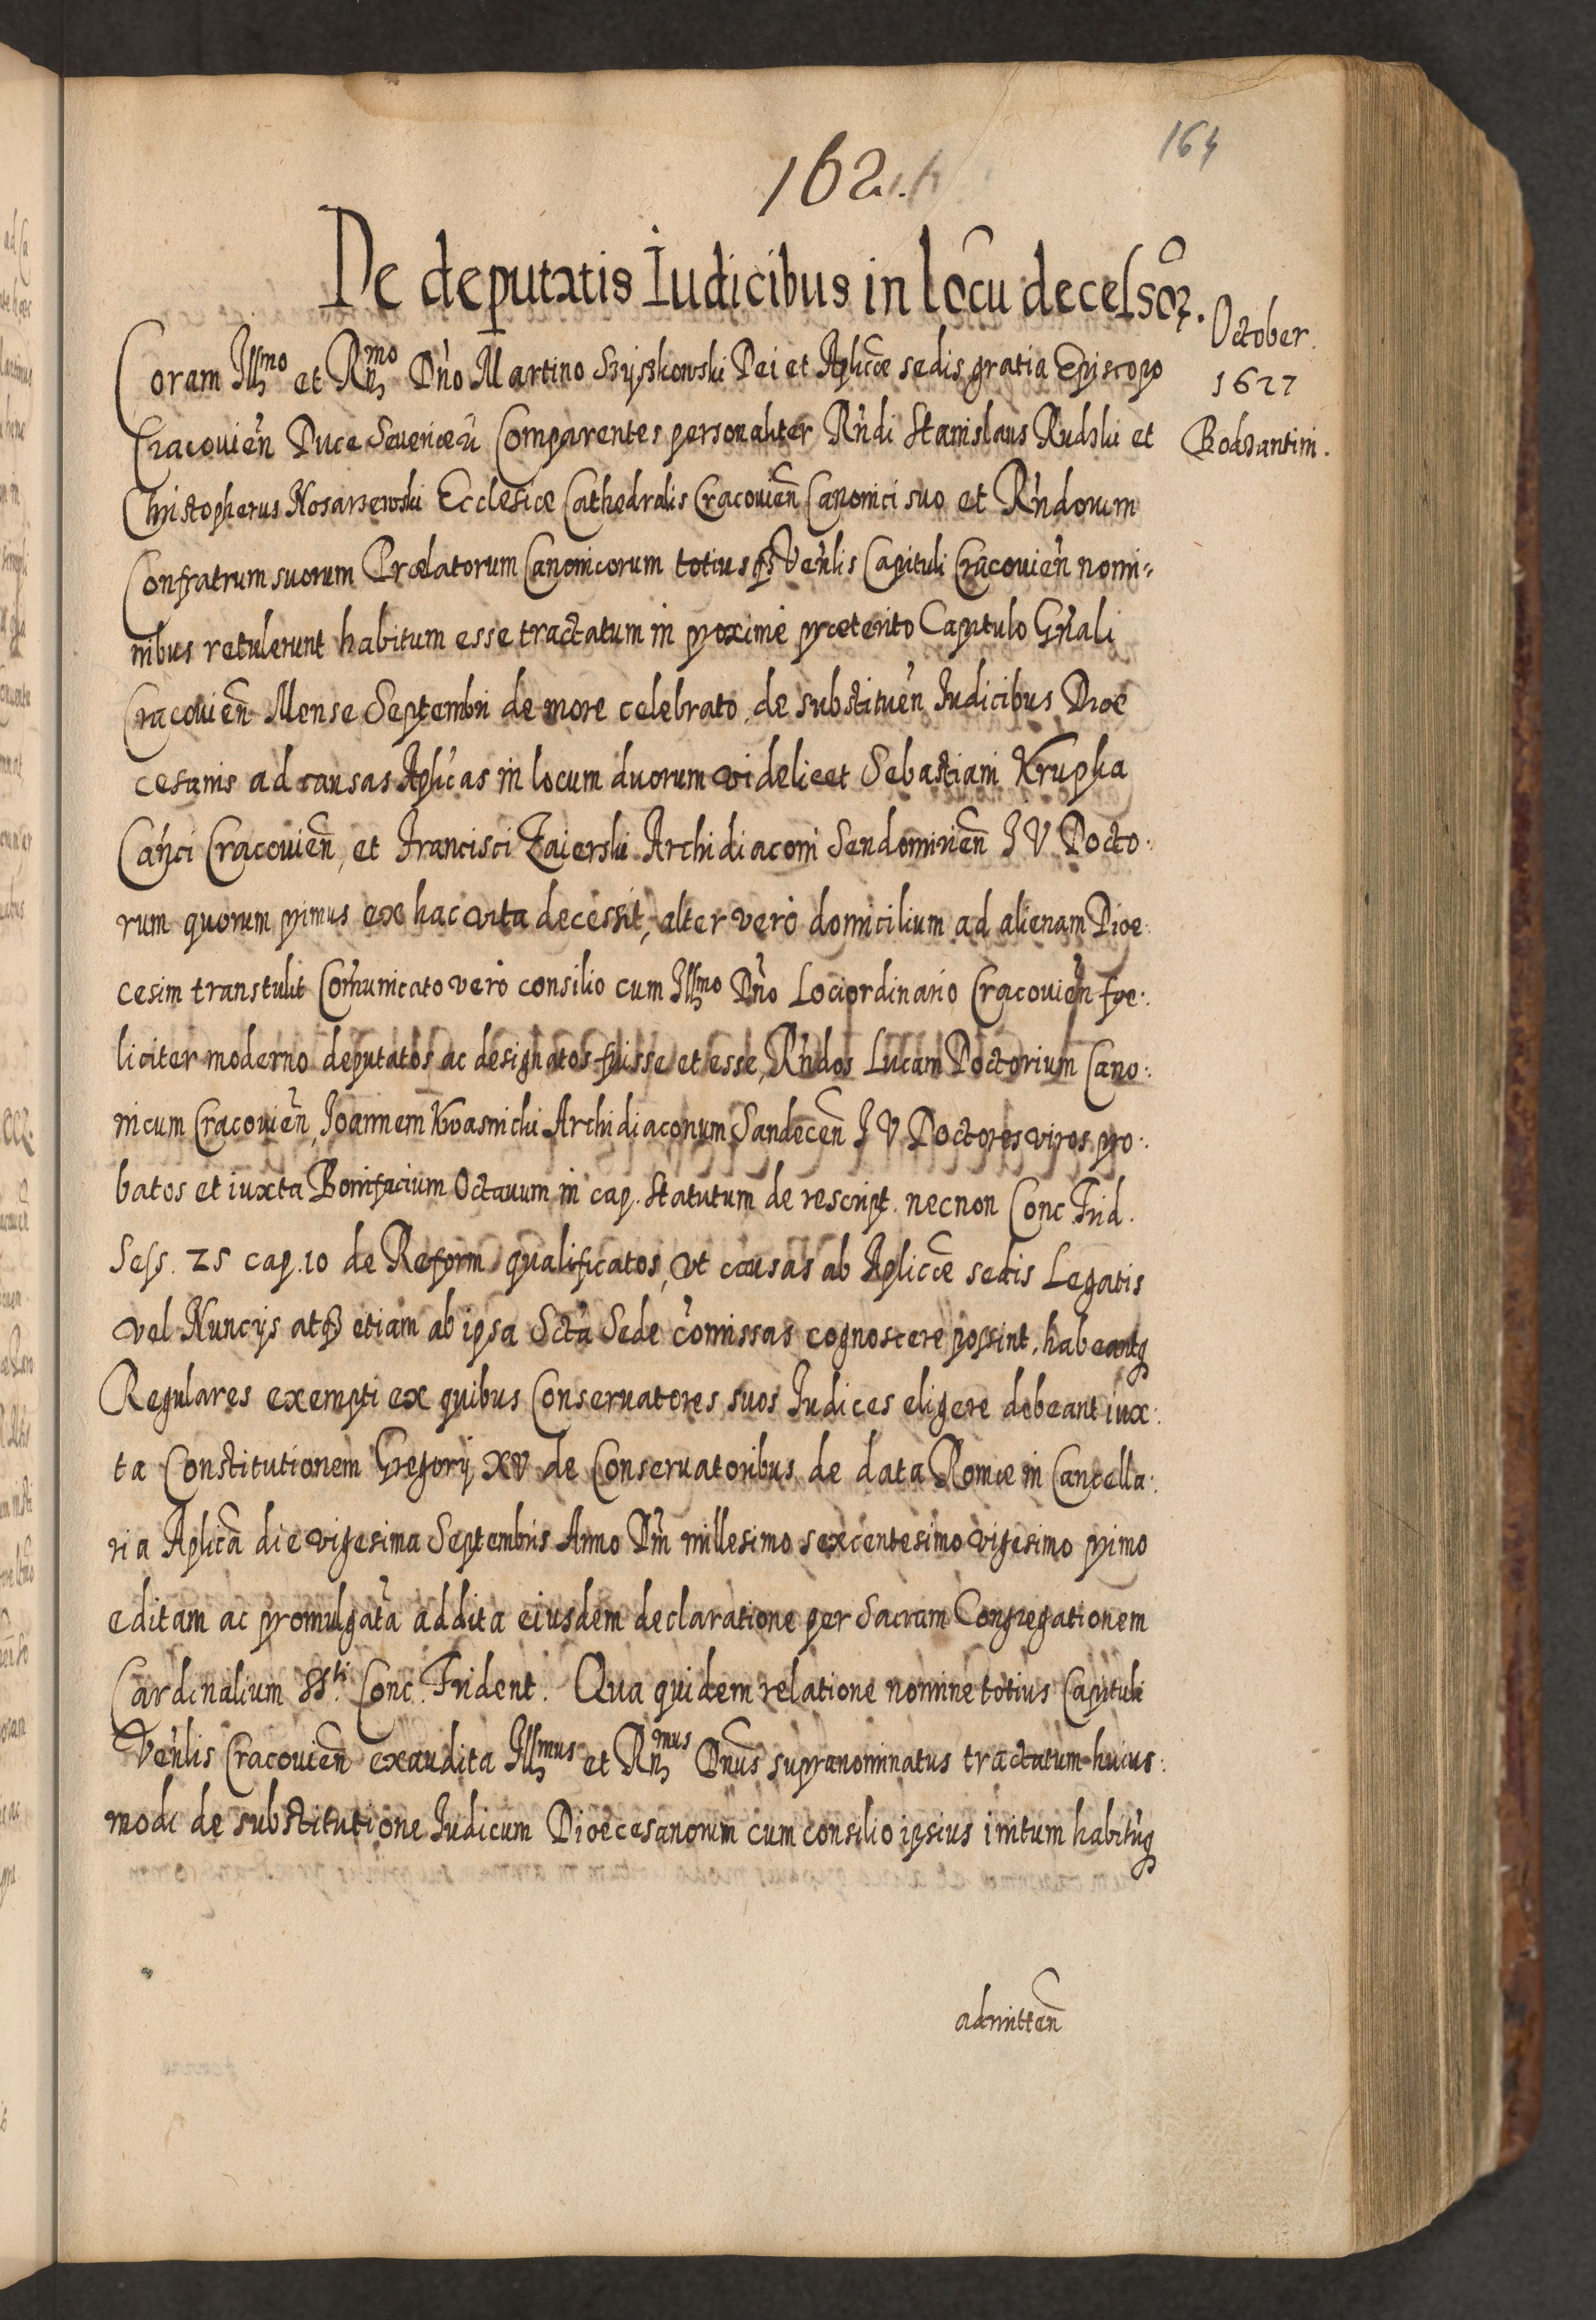 164
162.
De deputatis Iudicibus in locũ decessoꝝ.
October.
1627
Bodzantini.
Coram Illmo et Rnmo Dño Martino Szyszkowski Dei et Aplicæ sedis gratia Episcopo
Cracovieñ Duce Severieñ Comparentes personaliter Rñdi Stanislaus Rudzki et
Christopherus Nosarzewski Ecclesiæ Cathedralis Cracovieñ Canonici suo et Rñdorum
Confratrum suorum Prælatorum Canonicorum totiusqꝫ Veñlis Capituli Cracovieñ nomi-
nibus retulerunt habitum esse tractatum in proxime præterito Capitulo Gñali
Cracovieñ Mense Septembri de more celebrato, de substitueñ Iudicibus Dioe
cesanis ad causas Aplicas in locum duorum videlicet Sebastiani Krupka
Cañci Cracovieñ, et Francisci Zaierski Archidiaconi Sendomirieñ I V Docto:
rum quorum primus ex hac vita decessit, alter vero domicilium ad alienam Dioe:
cesim transtulit Com̃unicato vero consilio cum Illmo Dño Lociordinario Cracovieñ foe:
liciter moderno deputatos ac designatos fuisse et esse, Rñdos Lucam Doctorium Cano:
nicum Cracovieñ, Joannem Kwasnicki Archidiaconum Sandeceñ I V Doctores viros pro:
batos et iuxta Bonifacium Octavum in cap. Statutum de rescript. necnon Conc. Trid.
Sess. 25 cap. 10 de Reform qualificatos, vt causas ab Aplicæ sedis Legatis
vel Nuncijs atqꝫ etiam ab ipsa Sctã Sede com̃issas cognoscere possint, habeantq
Regulares exempti ex quibus Conservatores suos Iudices eligere debeant iux:
ta Constitutionem Gregorij XV de Conservatoribus de data Romæ in Cancella:
ria Aplicã die vigesima Septembris Anno Dñi millesimo sexcentesimo vigesimo primo
editam ac promulgatã addita eiusdem declaratione per Sacram Congregationem
Cardinalium SSti. Conc. Trident. Qua quidem relatione nomine totius Capituli
Veñlis Cracovieñ exaudita Illmus et Rnmus Dñus supranominatus tractatum huius:
modi de substitutione Iudicum Dioecesanorum cum consilio ipsius initum habitũq
admitteñ